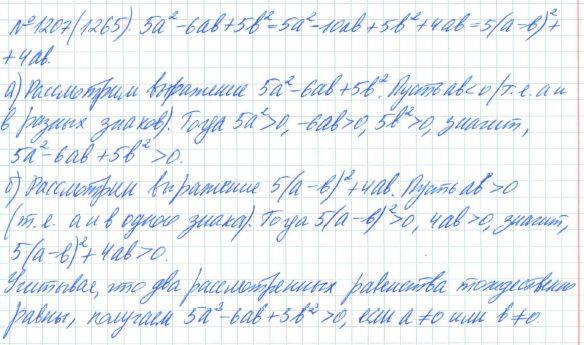 №1207(1265). 5a²-6ab+5b²=5a²-10ab+5b²+4ab=5(a-b)²+
+4ab.
а) Рассмотрим выражение 5a²-6ab+5b². Пусть ab<0 (т.е. a и
b разных знаков). Тогда 5a²>0, -6ab>0, 5b²>0, значит,
5a²-6ab+5b²>0.
б) Рассмотрим выражение 5(a-b)²+4ab. Пусть ab>0
(т.е. a и b одного знака). Тогда 5(a-b)²>0, 4ab>0, значит,
5(a-b)²+4ab>0.
Учитывая, что два рассмотренных равенства тождественно
равны, получаем 5a²-6ab+5b²>0, если a≠0 или b≠0.